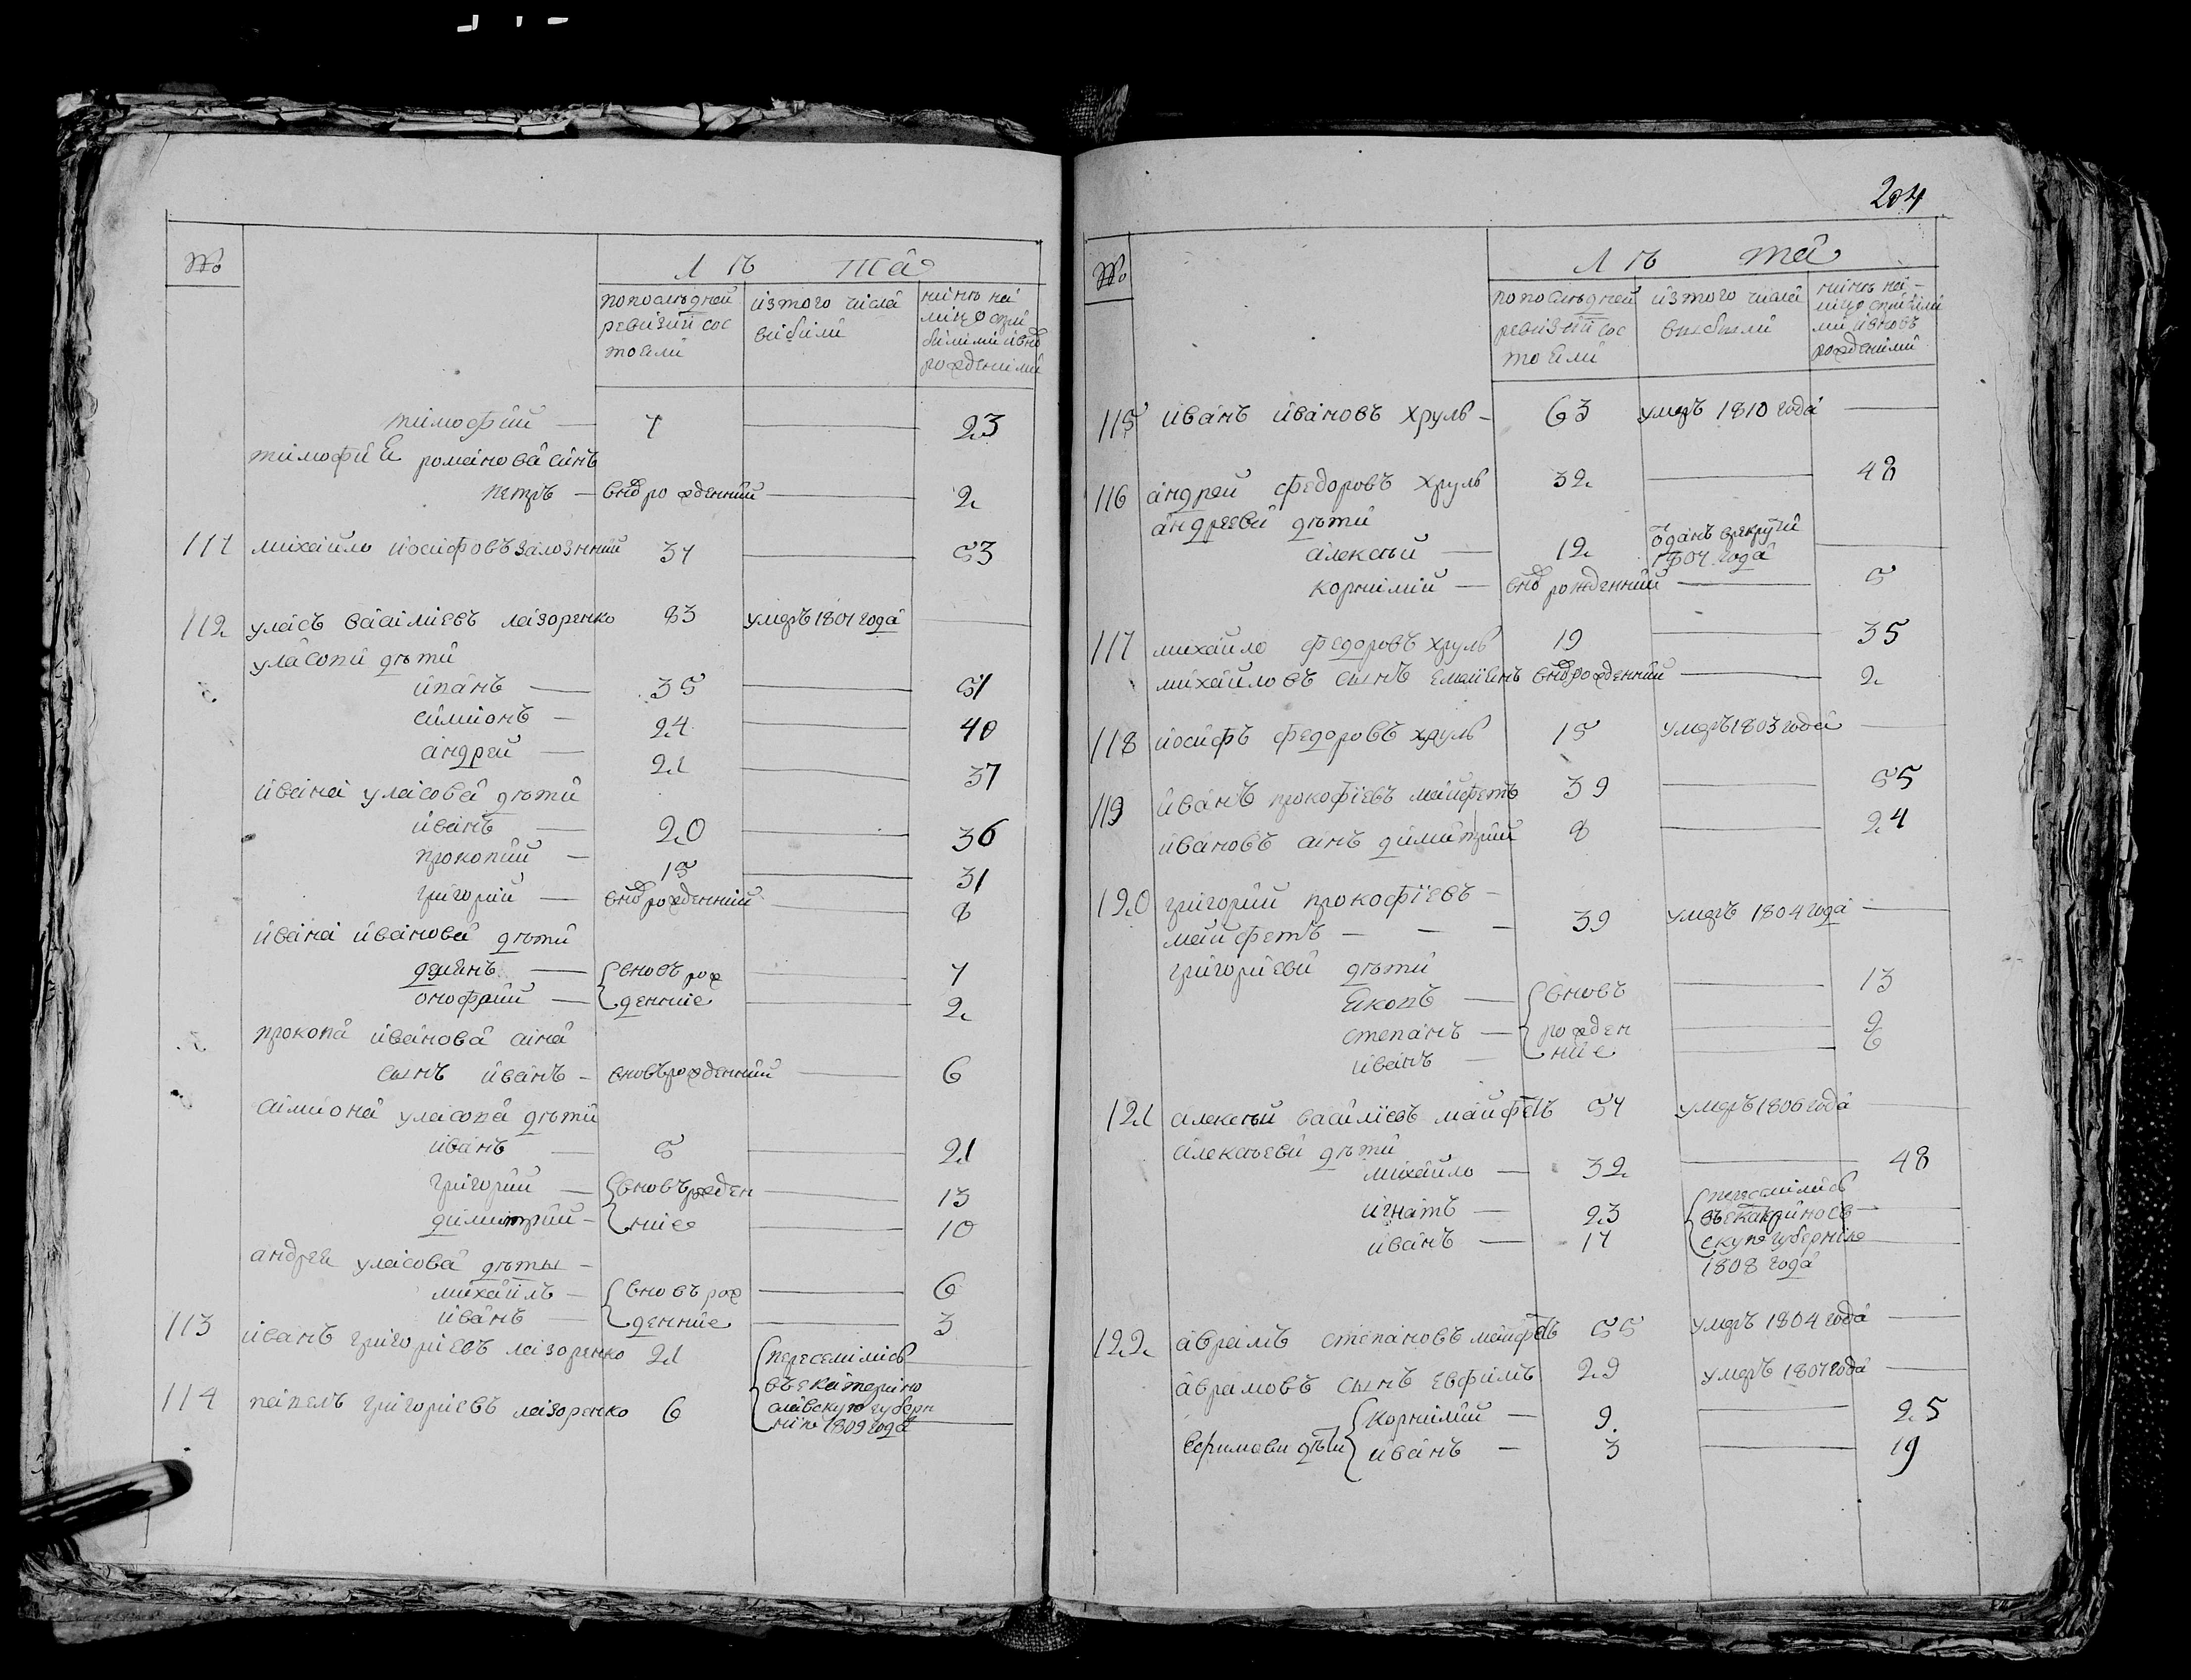 №
Лѣта
попослѣдней
ревизіи сос
тояли
изтого числа
вибили
нинѣ на
лицо спри
билими ивно
рожденими
тимофий — 7 — 23
тимофия романова синъ
петръ — вновърожденний — 2
111 михайло иосифовъ залознний 37 — 53
112 уласъ василиевъ лазоренко 83 умеръ 1807 года —
уласови дѣти
иванъ — 35 — 51
симионъ — 24 — 40
андрей — 21 — 37
ивана уласова дѣти
иванъ — 20 — 36
прокопий — 15 — 31
григорий — вновърожденний — 8
ивана иванова дѣти
демянъ — вновърож — 7
онофрий — денние — 2
прокопа иванова сина
сынъ иванъ — вновърожденний — 6
симиона уласова дѣти
иванъ — 5 — 21
григорий — вновърожден — 13
димитрий — ние — 10
андрея уласова дѣты —
михаилъ — вновърож — 6
иванъ — денние — 3
113 иванъ григориевъ лазоренко 21 переселились —
въекатерино
114 павелъ григориевъ лазоренко 6 славскую губерн
нию 1809 года —
204
№
Лѣта
попослѣдней
ревизіи сос
тояли
изтого числа
выбыли
нинѣ на-
лицо сприбили
ми ивновъ
рожденими
115 иванъ ивановъ хруль — 63 умеръ 1810 года —
116 андрей федоровъ хруль 32 — 48
андрееви дѣти
алексѣй — 12 отданъ врекрути —
1807 года
корнилий — вновърожденний — 5
117 михайло федоровъ хруль 19 — 35
михайловъ сынъ емелиянъ вновърожденний — 2
118 иосифъ федоровъ хруль 15 умеръ 1803 года —
119 иванъ прокофиевъ майфетъ 39 — 55
ивановъ синъ димитрий 8 — 24
120 григорий прокофиевъ —
майфетъ — — — 39 умеръ 1804 года —
григориеви дѣти
яковъ — вновъ — 13
степанъ — рожден — 9
иванъ — ние — 6
121 алексѣй василиевъ майфетъ 57 умеръ 1806 года —
алексѣеви дѣти
михайло — 32 — 48
игнатъ — 23 переселились
въекатеринослав —
иванъ — 17 скую губернию —
1808 года
122 аврамъ степановъ майфетъ 55 умеръ 1804 года —
аврамовъ сынъ евфимъ 29 умеръ 1807 года —
корнилий — 9 — 25
евфимови дѣти
иванъ — 3 — 19